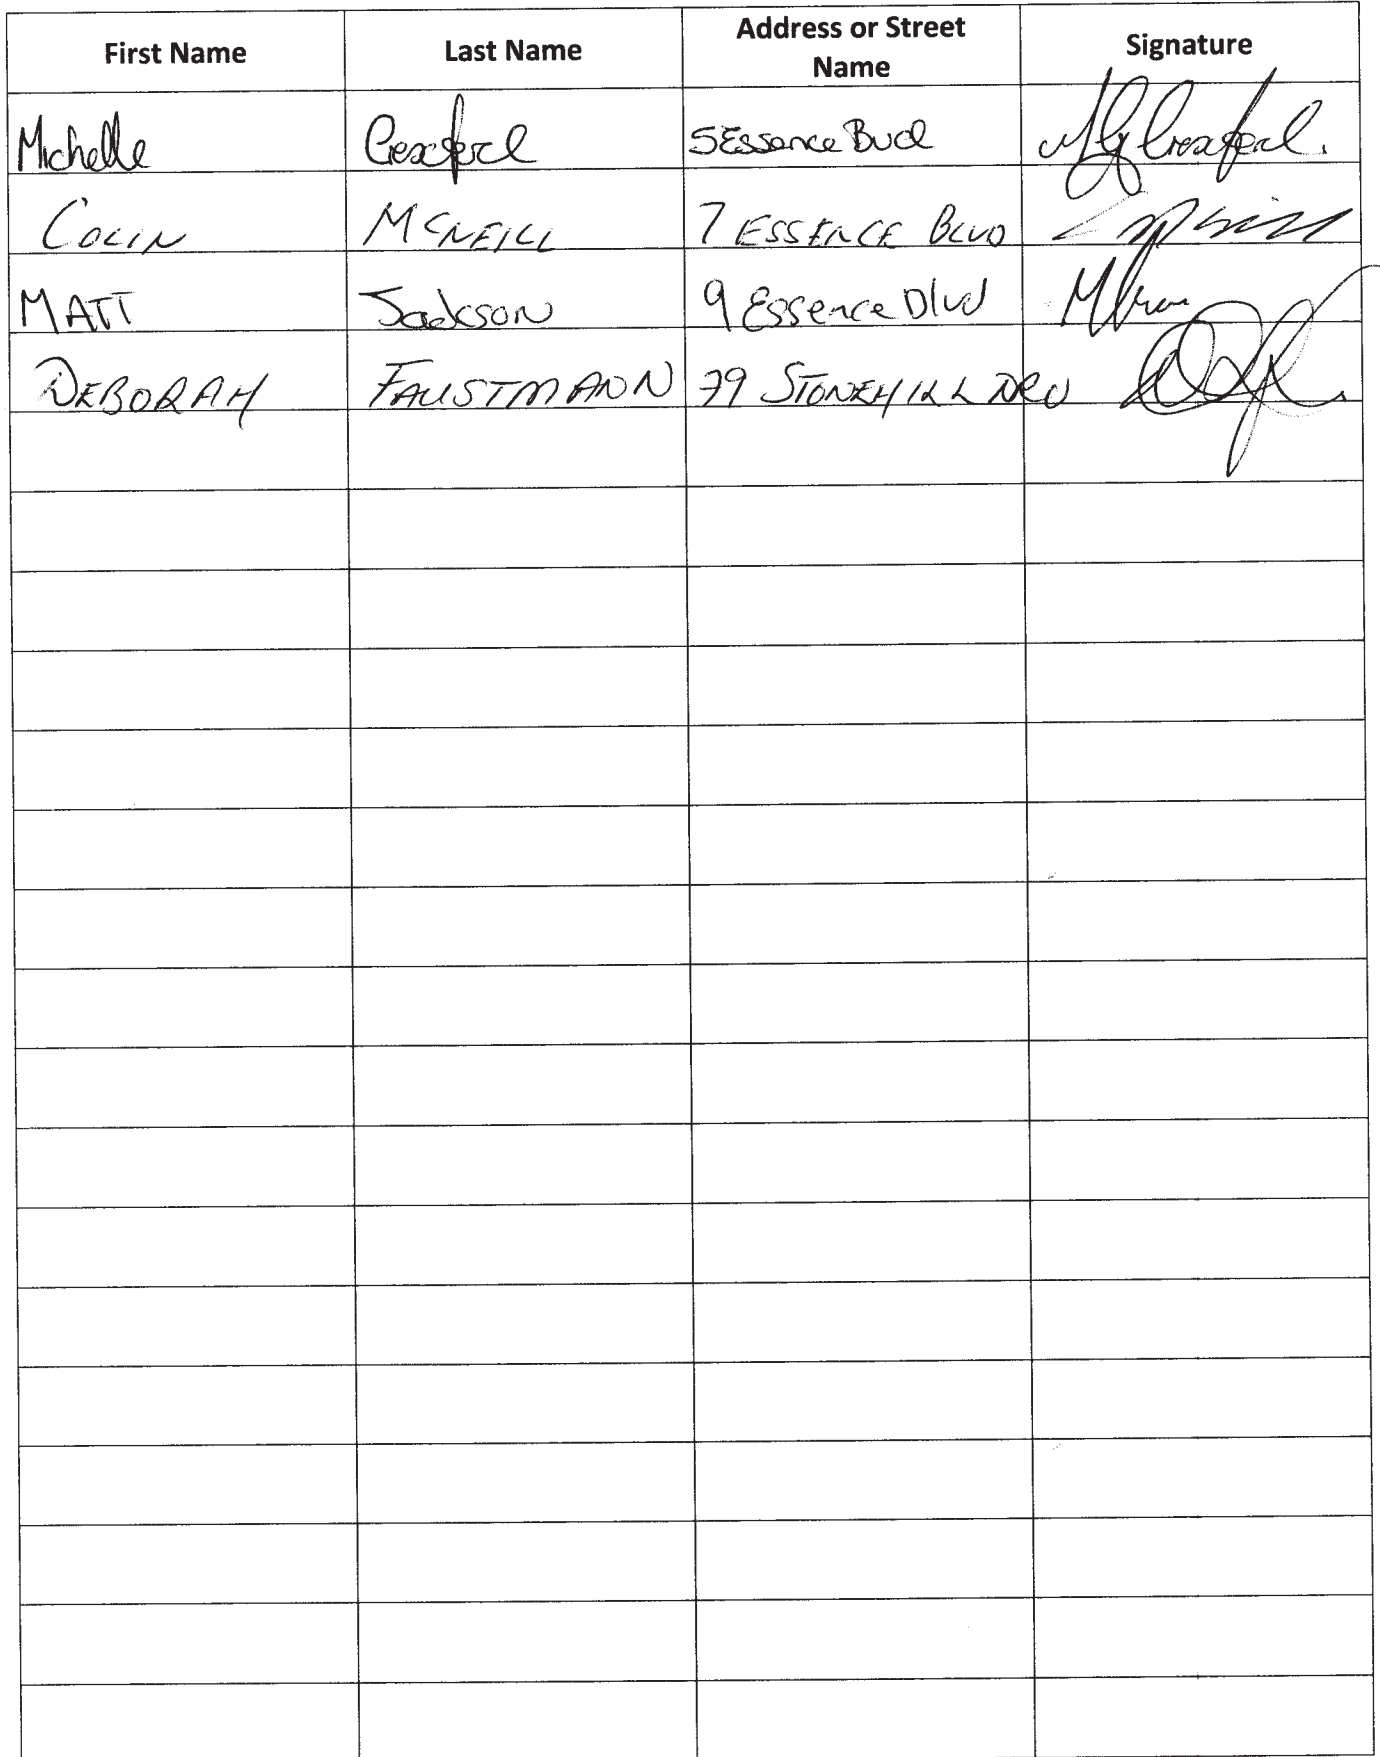 First Name Last Name Address or Street Name Signature
Michelle 5 Essence Bvd
COLIN MCNEILL 7 ESSENCE BLVD
MATT Jackson 9 Essence Blvd
DEBORAH FAUSTMANN 79 STONEHILL DRV